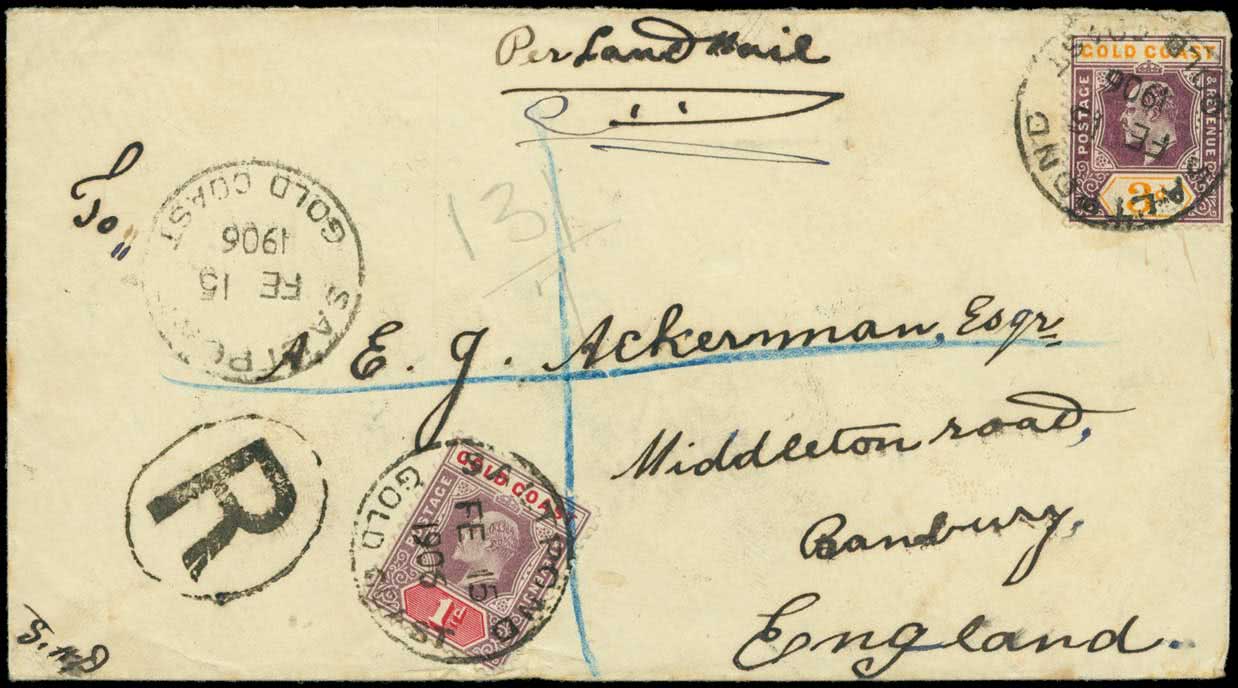 Per Land Mail
GOLD COAST
POSTAGE & REVENUE
3d
SALTPOND
GOLD COAST
FE 15
1906
To,,
GOLD COAST
1906
FE 15
SALTPOND
131
A E. J. Ackerman, Esqr
Middleton road,
Banbury,
England.
R
GOLD COAST
POSTAGE & REVENUE
1d
SALTPOND
FE 15
1906
GOLD COAST